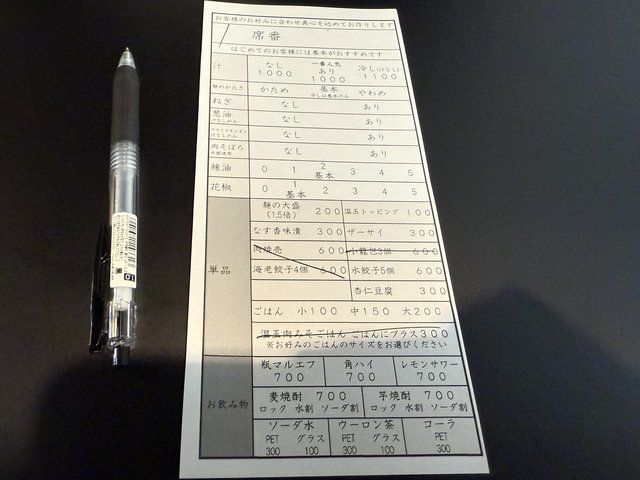 お客様のお好みに合わせ真心を込めてお作りします
席番
はじめてのお客様には基本がおすすめです
汁 なし 1000 一番人気 あり 1000 冷し(汁なし) 1100
麺のかたさ かため 基本 やわめ
ねぎ なし あり
葱油 汁なしのみ なし あり
フライドオニオン 汁なしのみ なし あり
肉そぼろ なし あり
辣油 0 1 2 基本 3 4 5
花椒 0 1 基本 2 3 4 5
単品
麺の大盛 (1.5倍) 200 温玉トッピング 100
なす香味漬 300 ザーサイ 300
肉焼売 600 小籠包3個 600
海老餃子4個 600 水餃子5個 600
杏仁豆腐 300
ごはん 小100 中150 大200
温玉肉みそごはん ごはんにプラス300
※お好みのごはんのサイズをお選びください
お飲み物
瓶マルエフ 700 角ハイ 700 レモンサワー 700
麦焼酎 700 芋焼酎 700
ロック 水割 ソーダ割 ロック 水割 ソーダ割
ソーダ水 ウーロン茶 コーラ
PET グラス PET グラス PET
300 100 300 100 300
1.0